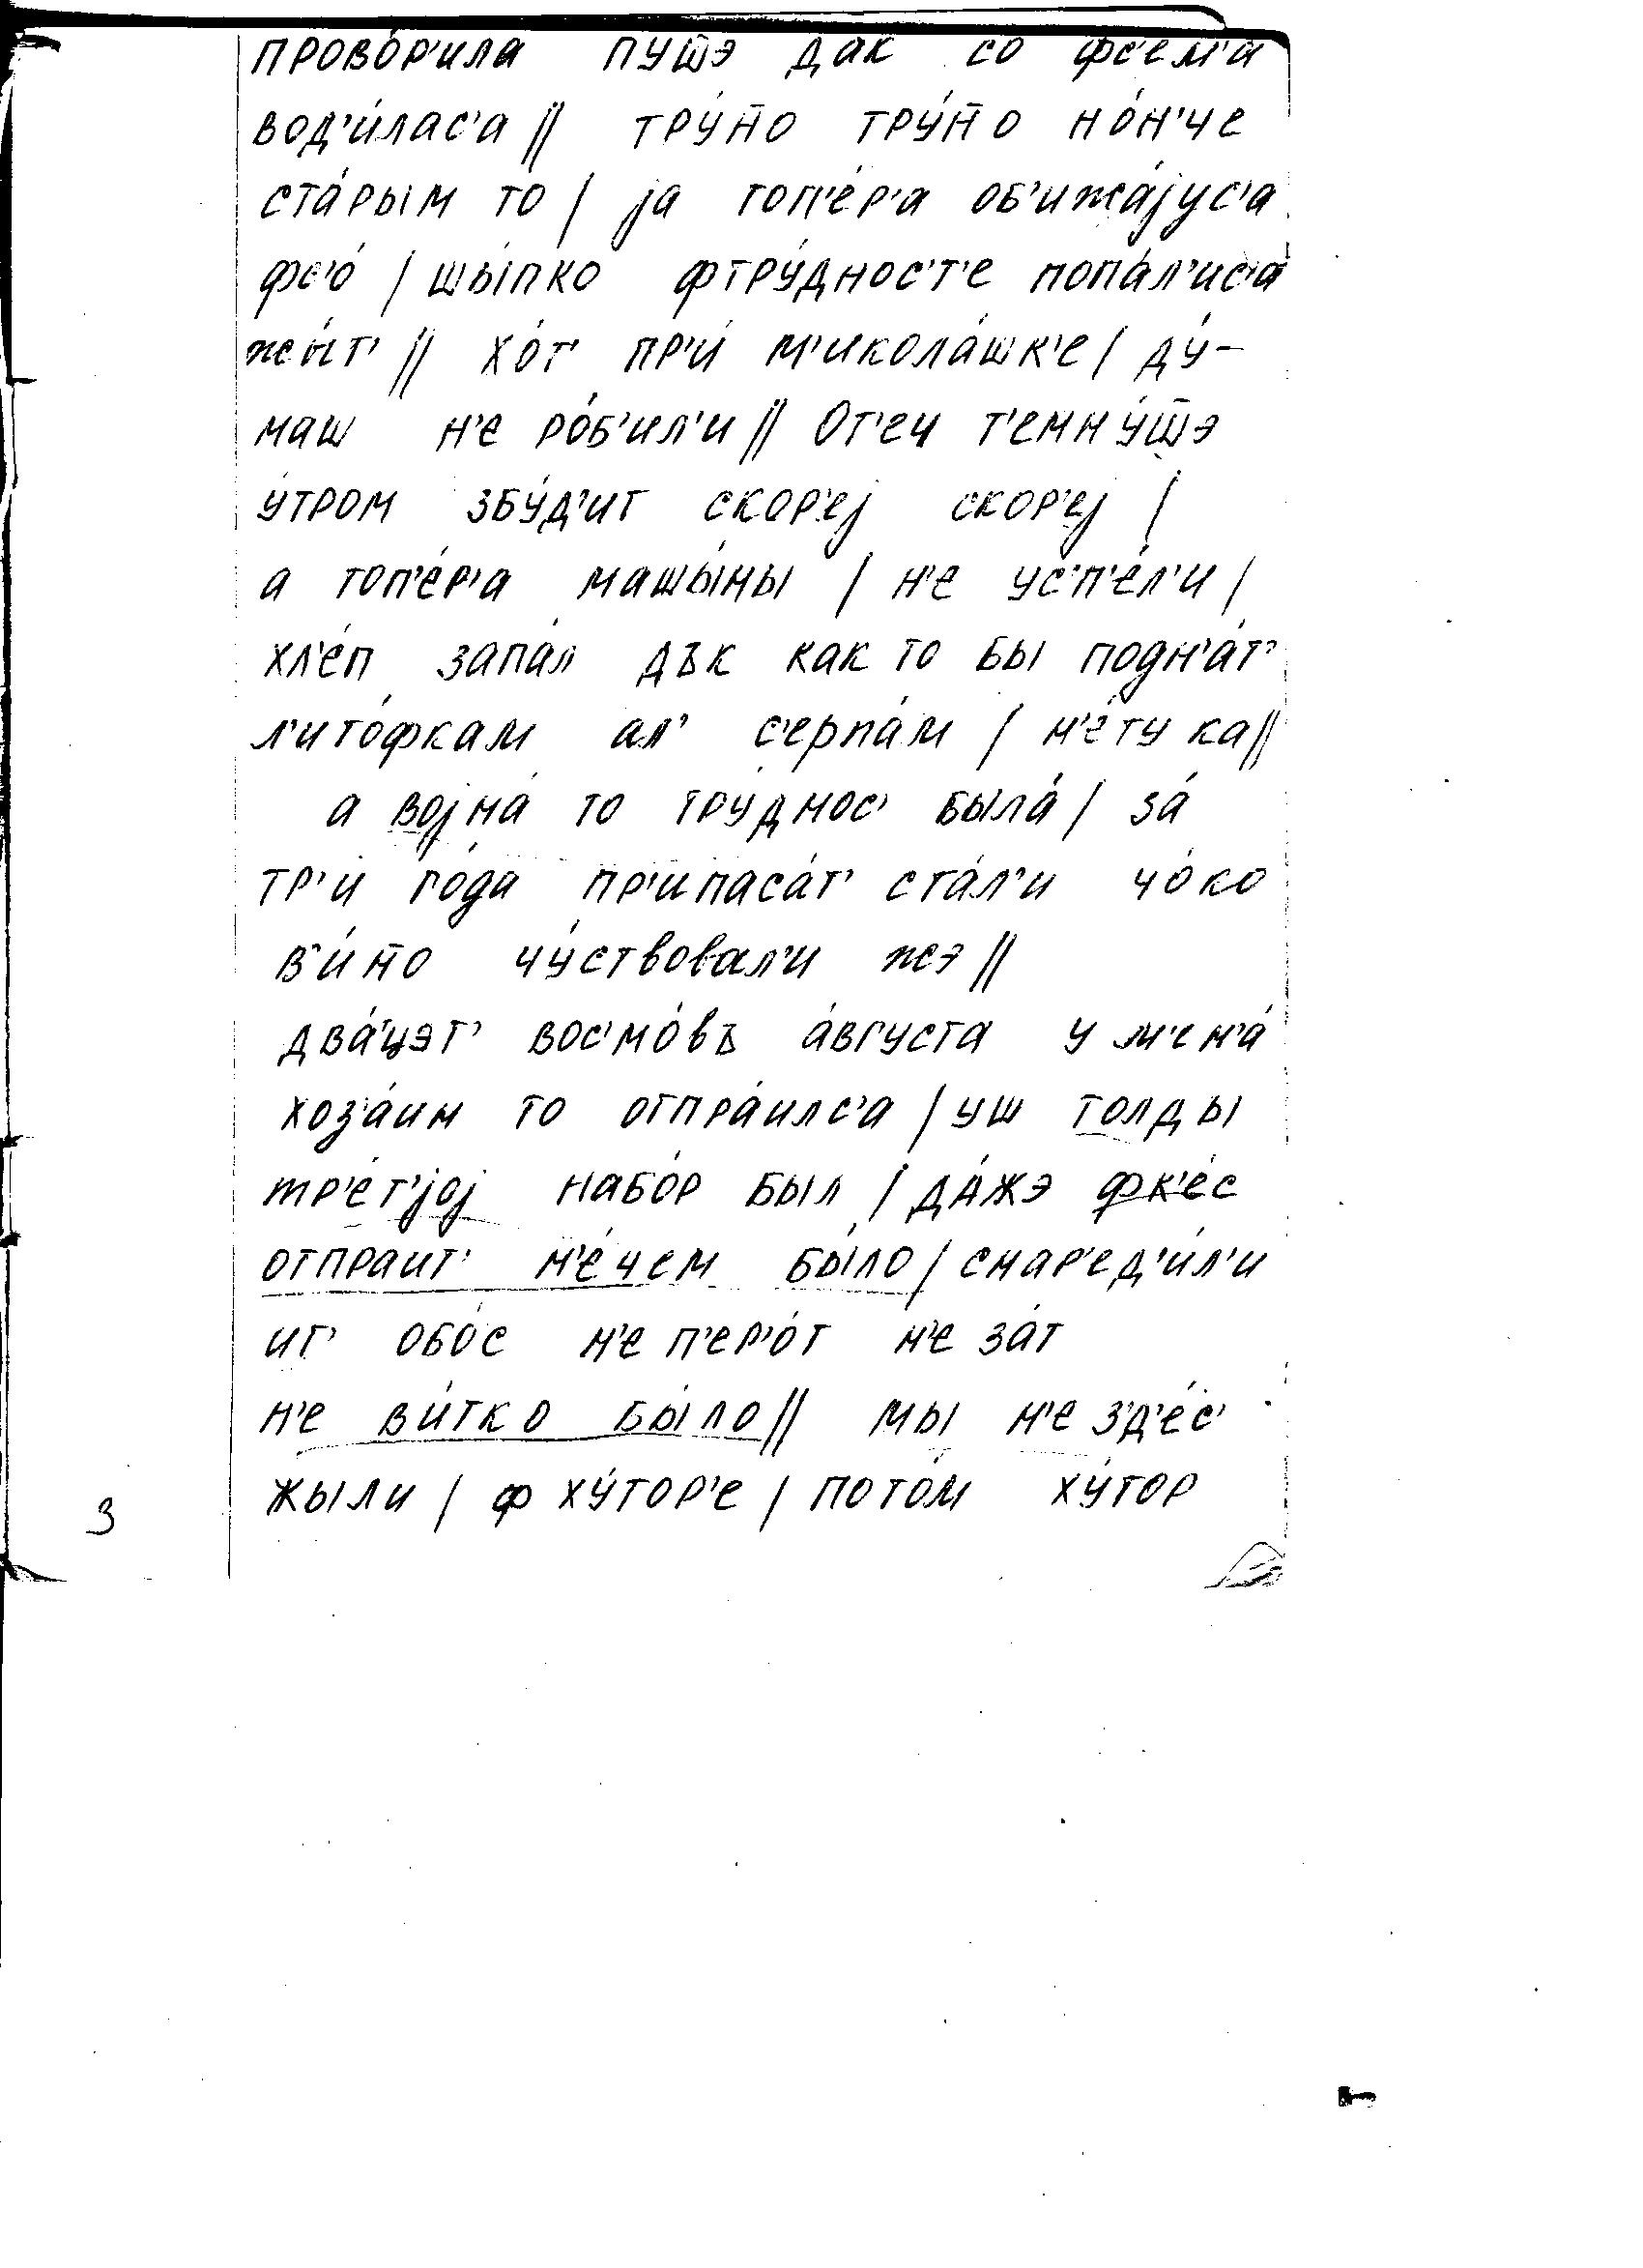 прово́р'ила пуш̄э дак со фс'ем'а
вод'и́лас'а || тру́н̄о тру́н̄о но́н'че
ста́рым то | jа топ'е́р'а об'ижа́jус'а
фс'о́ | шы́пко фтру́днос'т'е попа́л'ис'а
жы́т' || хо́т' пр'и́ м'икола́шк'е | ду́-
маш н'е ро́б'ил'и || От'еч т'емну́ш̄э
у́тром збу́д'ит скор'еj скор'еj |
а топ'е́р'а машы́ны | н'е ус'п'е́л'и |
хл'е́п запа́л дък как то бы подн'а́т'
л'ито́фкам ал' с'ерпа́м | н'е́ту ка ||
а воjна́ то тру́днос' была́ | за́
тр'и го́да пр'ипаса́т' ста́л'и чо́ко
в'и́н̄о чу́ствовал'и жэ ||
два́цэт' вос'мо́въ а́вгуста у м'ен'а́
хоз'а́ин то отпра́илс'а | уш толды
тр'е́т'jоj набо́р был | да́жэ фк'е́с
отпраит' н'е́чем бы́ло | снар'ед'и́л'и
ит' обо́с н'е п'ер'о́т н'е за́т
н'е ви́тко бы́ло || мы н'е з'д'е́с'
жыли | ф ху́тор'е | пото́м ху́тор
3